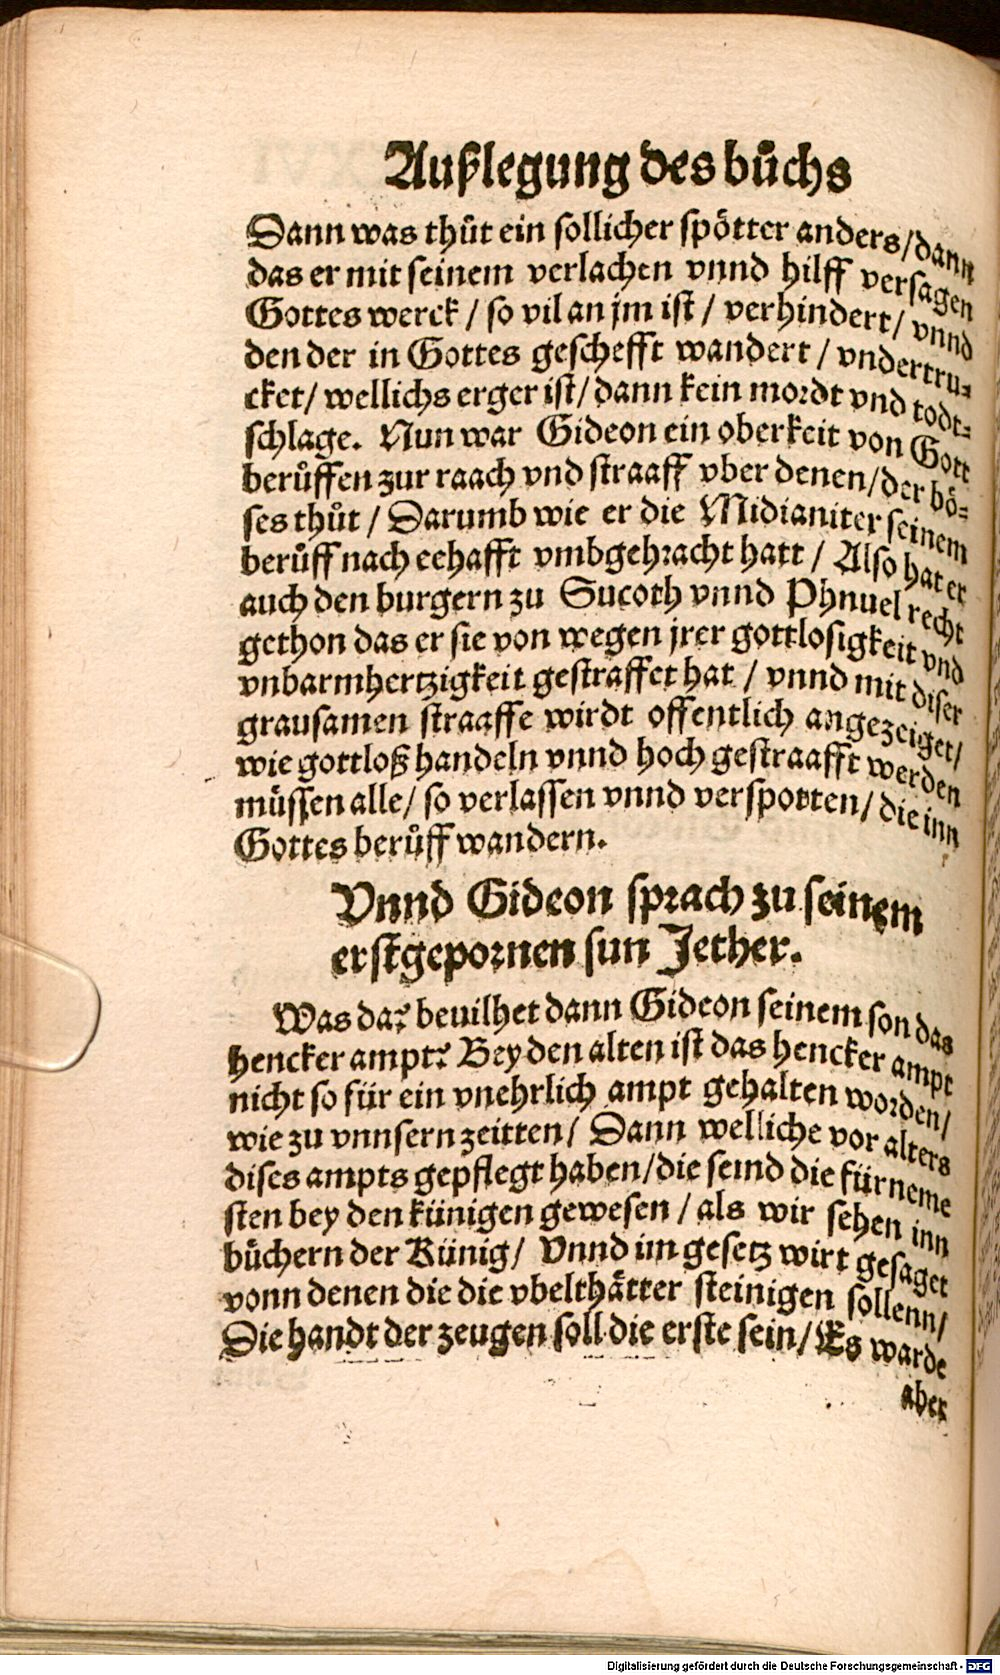 Außlegung des bůchs
Dann was thůt ein sollicher spötter anders/ dann
das er mit seinem verlachen vnnd hilff versagen
Gottes werck / so vil an jm ist / verhindert/ vnnd
den der in Gottes geschefft wandert / vndertru⸗
cket/ wellichs erger ist/ dann kein mordt vnd todt⸗
schlage. Nun war Gideon ein oberkeit von Gott
berůffen zur raach vnd straaff vber denen/ der bö⸗
ses thůt / Darumb wie er die Midianiter seinem
berůff nach eehafft vmbgebracht hatt / Also hat er
auch den burgern zu Sucoth vnnd Phnuel recht
gethon das er sie von wegen jrer gottlosigkeit vnd
vnbarmhertzigkeit gestraffet hat / vnnd mit diser
grausamen straaffe wirdt offentlich angezeiget/
wie gottloß handeln vnnd hoch gestraafft werden
müssen alle/ so verlassen vnnd verspotten/ die inn
Gottes berůff wandern.
Vnnd Gideon sprach zu seinem
erstgepornen sun Jether.
Was da? beuilhet dann Gideon seinem son das
hencker ampt? Bey den alten ist das hencker ampt
nicht so für ein vnehrlich ampt gehalten worden/
wie zu vnnsern zeitten/ Dann welliche vor alters
dises ampts gepflegt haben/ die seind die fürneme
sten bey den künigen gewesen / als wir sehen inn
bůchern der Künig/ Vnnd im gesetz wirt gesaget
vonn denen die die vbelthätter steinigen sollenn/
Die handt der zeugen soll die erste sein/ Es warde
aber
Digitalisierung gefördert durch die Deutsche Forschungsgemeinschaft - DFG